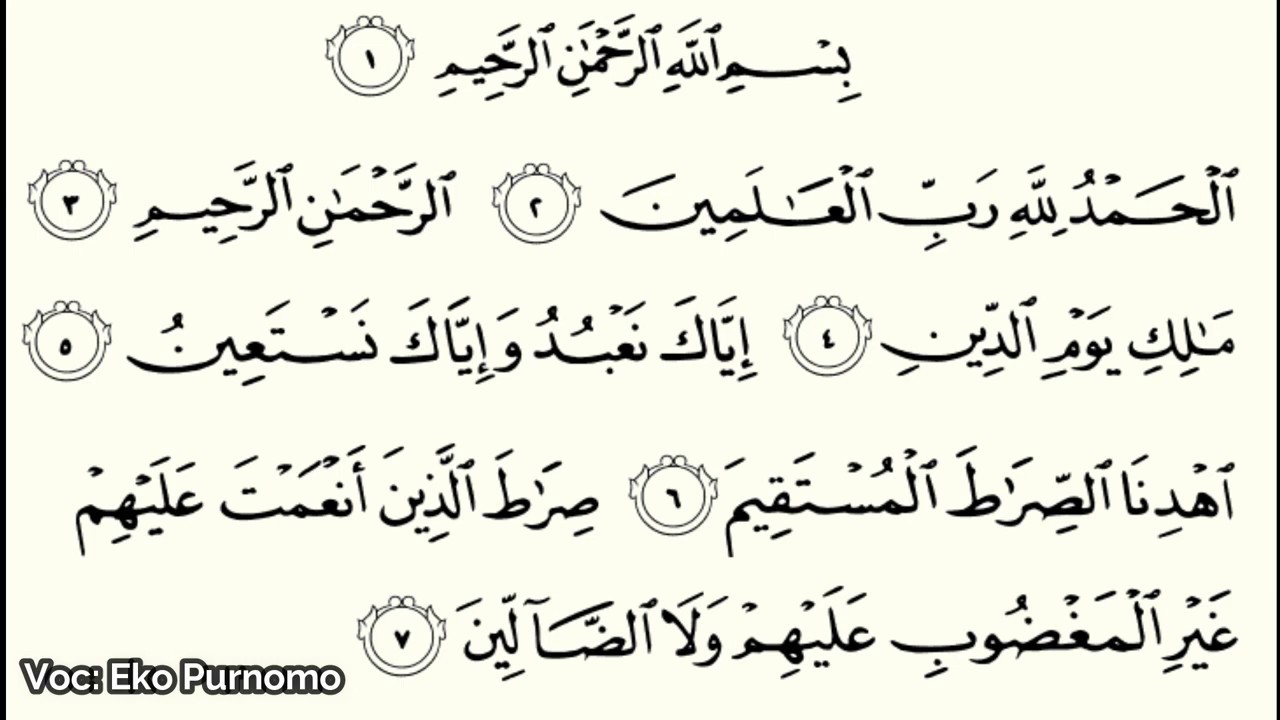 بِسْمِ ٱللَّهِ ٱلرَّحْمَٰنِ ٱلرَّحِيمِ ١
ٱلْحَمْدُ لِلَّهِ رَبِّ ٱلْعَـٰلَمِينَ ٢ ٱلرَّحْمَٰنِ ٱلرَّحِيمِ ٣
مَـٰلِكِ يَوْمِ ٱلدِّينِ ٤ إِيَّاكَ نَعْبُدُ وَإِيَّاكَ نَسْتَعِينُ ٥
ٱهْدِنَا ٱلصِّرَٰطَ ٱلْمُسْتَقِيمَ ٦ صِرَٰطَ ٱلَّذِينَ أَنْعَمْتَ عَلَيْهِمْ
غَيْرِ ٱلْمَغْضُوبِ عَلَيْهِمْ وَلَا ٱلضَّآلِّينَ ٧
Voc: Eko Purnomo